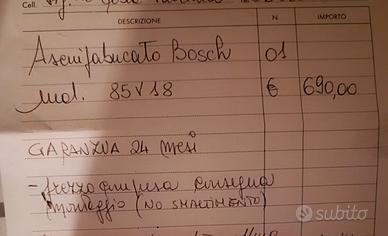 Cell.
DESCRIZIONE N IMPORTO
Asciugabucato Bosch 01
Mod. 85V18 € 690,00
GARANZIA 24 mesi
- prezzo compresa consegna
montaggio (NO SMALTIMENTO)
subito